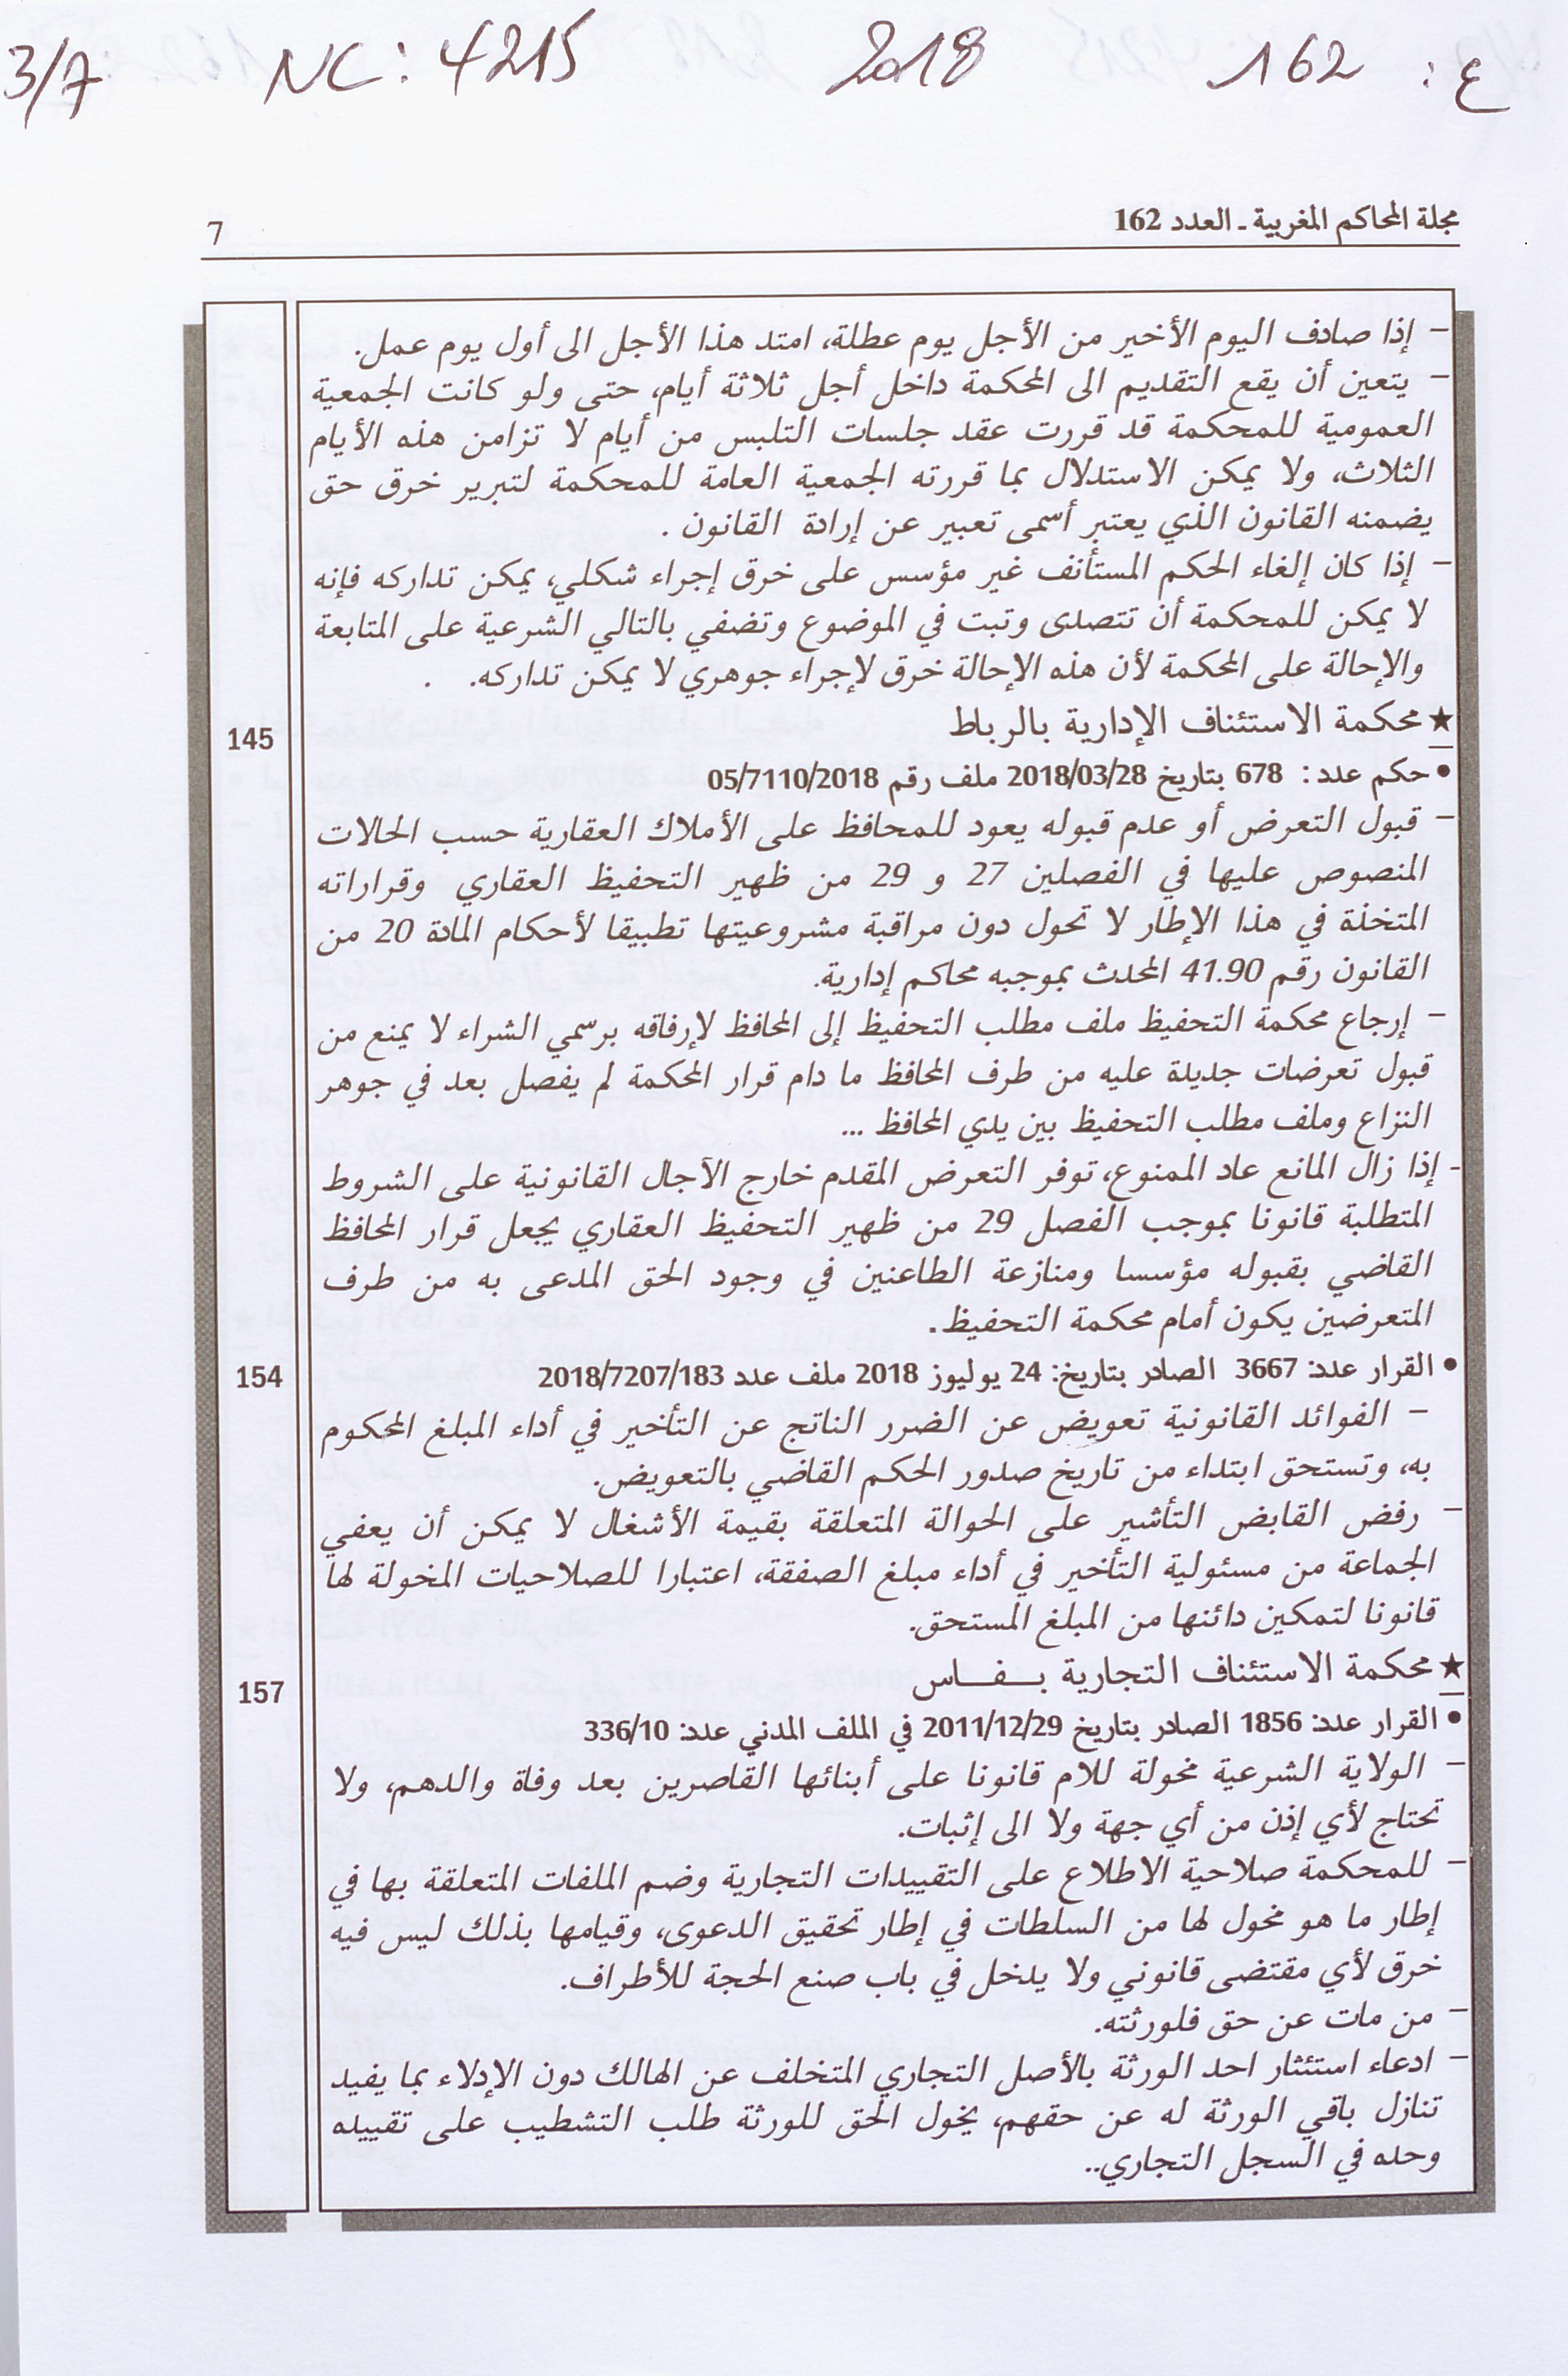 3/7 NC: 4215 2018 162 : ع
مجلة المحاكم المغربية ـ العدد 162 7
– إذا صادف اليوم الأخير من الأجل يوم عطلة، امتد هذا الأجل الى أول يوم عمل.
– يتعين أن يقع التقديم الى المحكمة داخل أجل ثلاثة أيام، حتى ولو كانت الجمعية
العمومية للمحكمة قد قررت عقد جلسات التلبس من أيام لا تزامن هذه الأيام
الثلاث، ولا يمكن الاستدلال بما قررته الجمعية العامة للمحكمة لتبرير خرق حق
يضمنه القانون الذي يعتبر أسمى تعبير عن إرادة القانون .
– إذا كان إلغاء الحكم المستأنف غير مؤسس على خرق إجراء شكلي، يمكن تداركه فإنه
لا يمكن للمحكمة أن تتصدى وتبت في الموضوع وتضفي بالتالي الشرعية على المتابعة
والإحالة على المحكمة لأن هذه الإحالة خرق لإجراء جوهري لا يمكن تداركه. .
★ محكمة الاستئناف الإدارية بالرباط 145
• حكم عدد : 678 بتاريخ 2018/03/28 ملف رقم 05/7110/2018
– قبول التعرض أو عدم قبوله يعود للمحافظ على الأملاك العقارية حسب الحالات
المنصوص عليها في الفصلين 27 و 29 من ظهير التحفيظ العقاري وقراراته
المتخذة في هذا الإطار لا تحول دون مراقبة مشروعيتها تطبيقا لأحكام المادة 20 من
القانون رقم 41.90 المحدث بموجبه محاكم إدارية.
– إرجاع محكمة التحفيظ ملف مطلب التحفيظ إلى المحافظ لإرفاقه برسمي الشراء لا يمنع من
قبول تعرضات جديدة عليه من طرف المحافظ ما دام قرار المحكمة لم يفصل بعد في جوهر
النزاع وملف مطلب التحفيظ بين يدي المحافظ ...
- إذا زال المانع عاد الممنوع، توفر التعرض المقدم خارج الآجال القانونية على الشروط
المتطلبة قانونا بموجب الفصل 29 من ظهير التحفيظ العقاري يجعل قرار المحافظ
القاضي بقبوله مؤسسا ومنازعة الطاعنين في وجود الحق المدعى به من طرف
المتعرضين يكون أمام محكمة التحفيظ.
• القرار عدد: 3667 الصادر بتاريخ: 24 يوليوز 2018 ملف عدد 2018/7207/183 154
– الفوائد القانونية تعويض عن الضرر الناتج عن التأخير في أداء المبلغ المحكوم
به، وتستحق ابتداء من تاريخ صدور الحكم القاضي بالتعويض.
– رفض القابض التأشير على الحوالة المتعلقة بقيمة الأشغال لا يمكن أن يعفي
الجماعة من مسئولية التأخير في أداء مبلغ الصفقة، اعتبارا للصلاحيات المخولة لها
قانونا لتمكين دائنها من المبلغ المستحق.
★ محكمة الاستئناف التجارية بــفــاس 157
• القرار عدد: 1856 الصادر بتاريخ 2011/12/29 في الملف المدني عدد: 336/10
– الولاية الشرعية مخولة للام قانونا على أبنائها القاصرين بعد وفاة والدهم، ولا
تحتاج لأي إذن من أي جهة ولا الى إثبات.
– للمحكمة صلاحية الاطلاع على التقييدات التجارية وضم الملفات المتعلقة بها في
إطار ما هو مخول لها من السلطات في إطار تحقيق الدعوى، وقيامها بذلك ليس فيه
خرق لأي مقتضى قانوني ولا يدخل في باب صنع الحجة للأطراف.
– من مات عن حق فلورثته.
– ادعاء استئثار احد الورثة بالأصل التجاري المتخلف عن الهالك دون الإدلاء بما يفيد
تنازل باقي الورثة له عن حقهم، يخول الحق للورثة طلب التشطيب على تقييده
وحده في السجل التجاري..